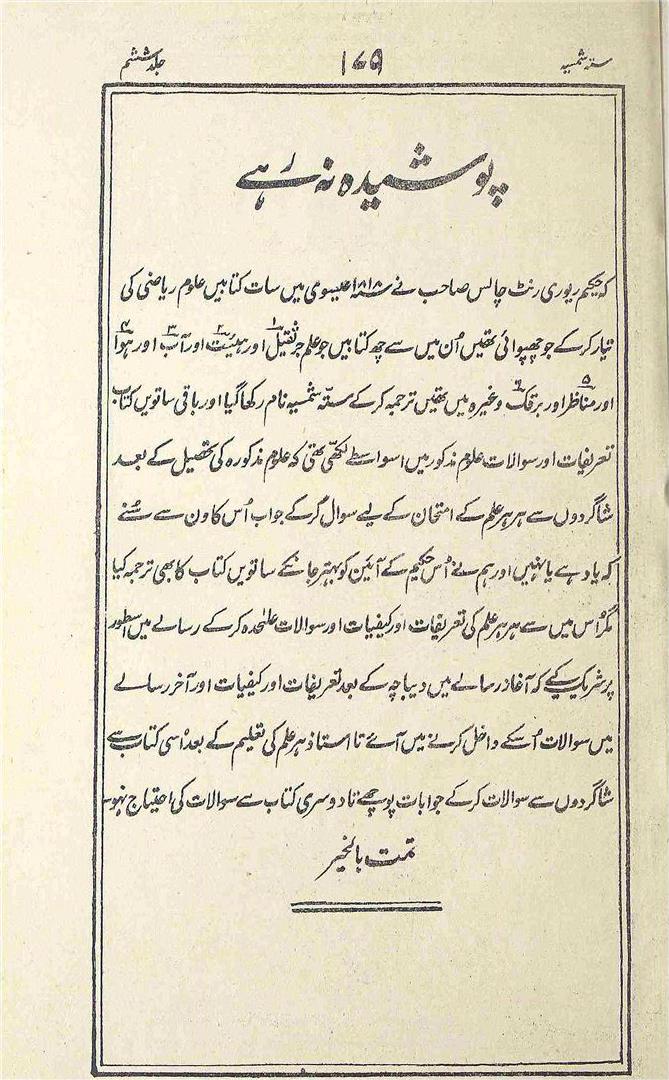 ستہ شمسیہ ۱۷۹ جلد ششم
پوشیدہ نہ رہے
کہ حکیم ریوری رنٹ چالس صاحب نے ۱۸۱۸ عیسوی میں سات کتابیں علوم ریاضی کی
تیار کر کے جو چھپوائی تھیں اُن میں سے چھ کتابیں جو علم جر ثقیل۱ اور ہیئت۲ اور آب۳ اور ہوا۴
اور مناظر۵ اور برقک۶ وغیرہ میں تھیں ترجمہ کر کے ستہ شمسیہ نام رکھا گیا اور باقی ساتویں کتاب
تعریفات اور سوالات علوم مذکور میں اسواسطے لکھی تھی کہ علوم مذکورہ کی تحصیل کے بعد
شاگردوں سے ہر ہر علم کے امتحان کے لیے سوال کر کے جواب اُس کا ون سے سُنے
کہ یاد ہے یا نہیں اور ہم نے اُس حکیم کے آئین کو بہتر جانکے ساتویں کتاب کا بھی ترجمہ کیا
مگر اُس میں سے ہر ہر علم کی تعریفات اور کیفیات اور سوالات علٰحدہ کر کے رسالے میں اسطور
پر شریک کیے کہ آغاز رسالے میں دیباچہ کے بعد تعریفات اور کیفیات اور آخر رسالے
میں سوالات اُسکے داخل کرنے میں آئے تا استاذ ہر علم کی تعلیم کے بعد اُسی کتاب سے
شاگردوں سے سوالات کر کے جوابات پوچھے تا دوسری کتاب سے سوالات کی احتیاج نہووے
تمت بالخیر